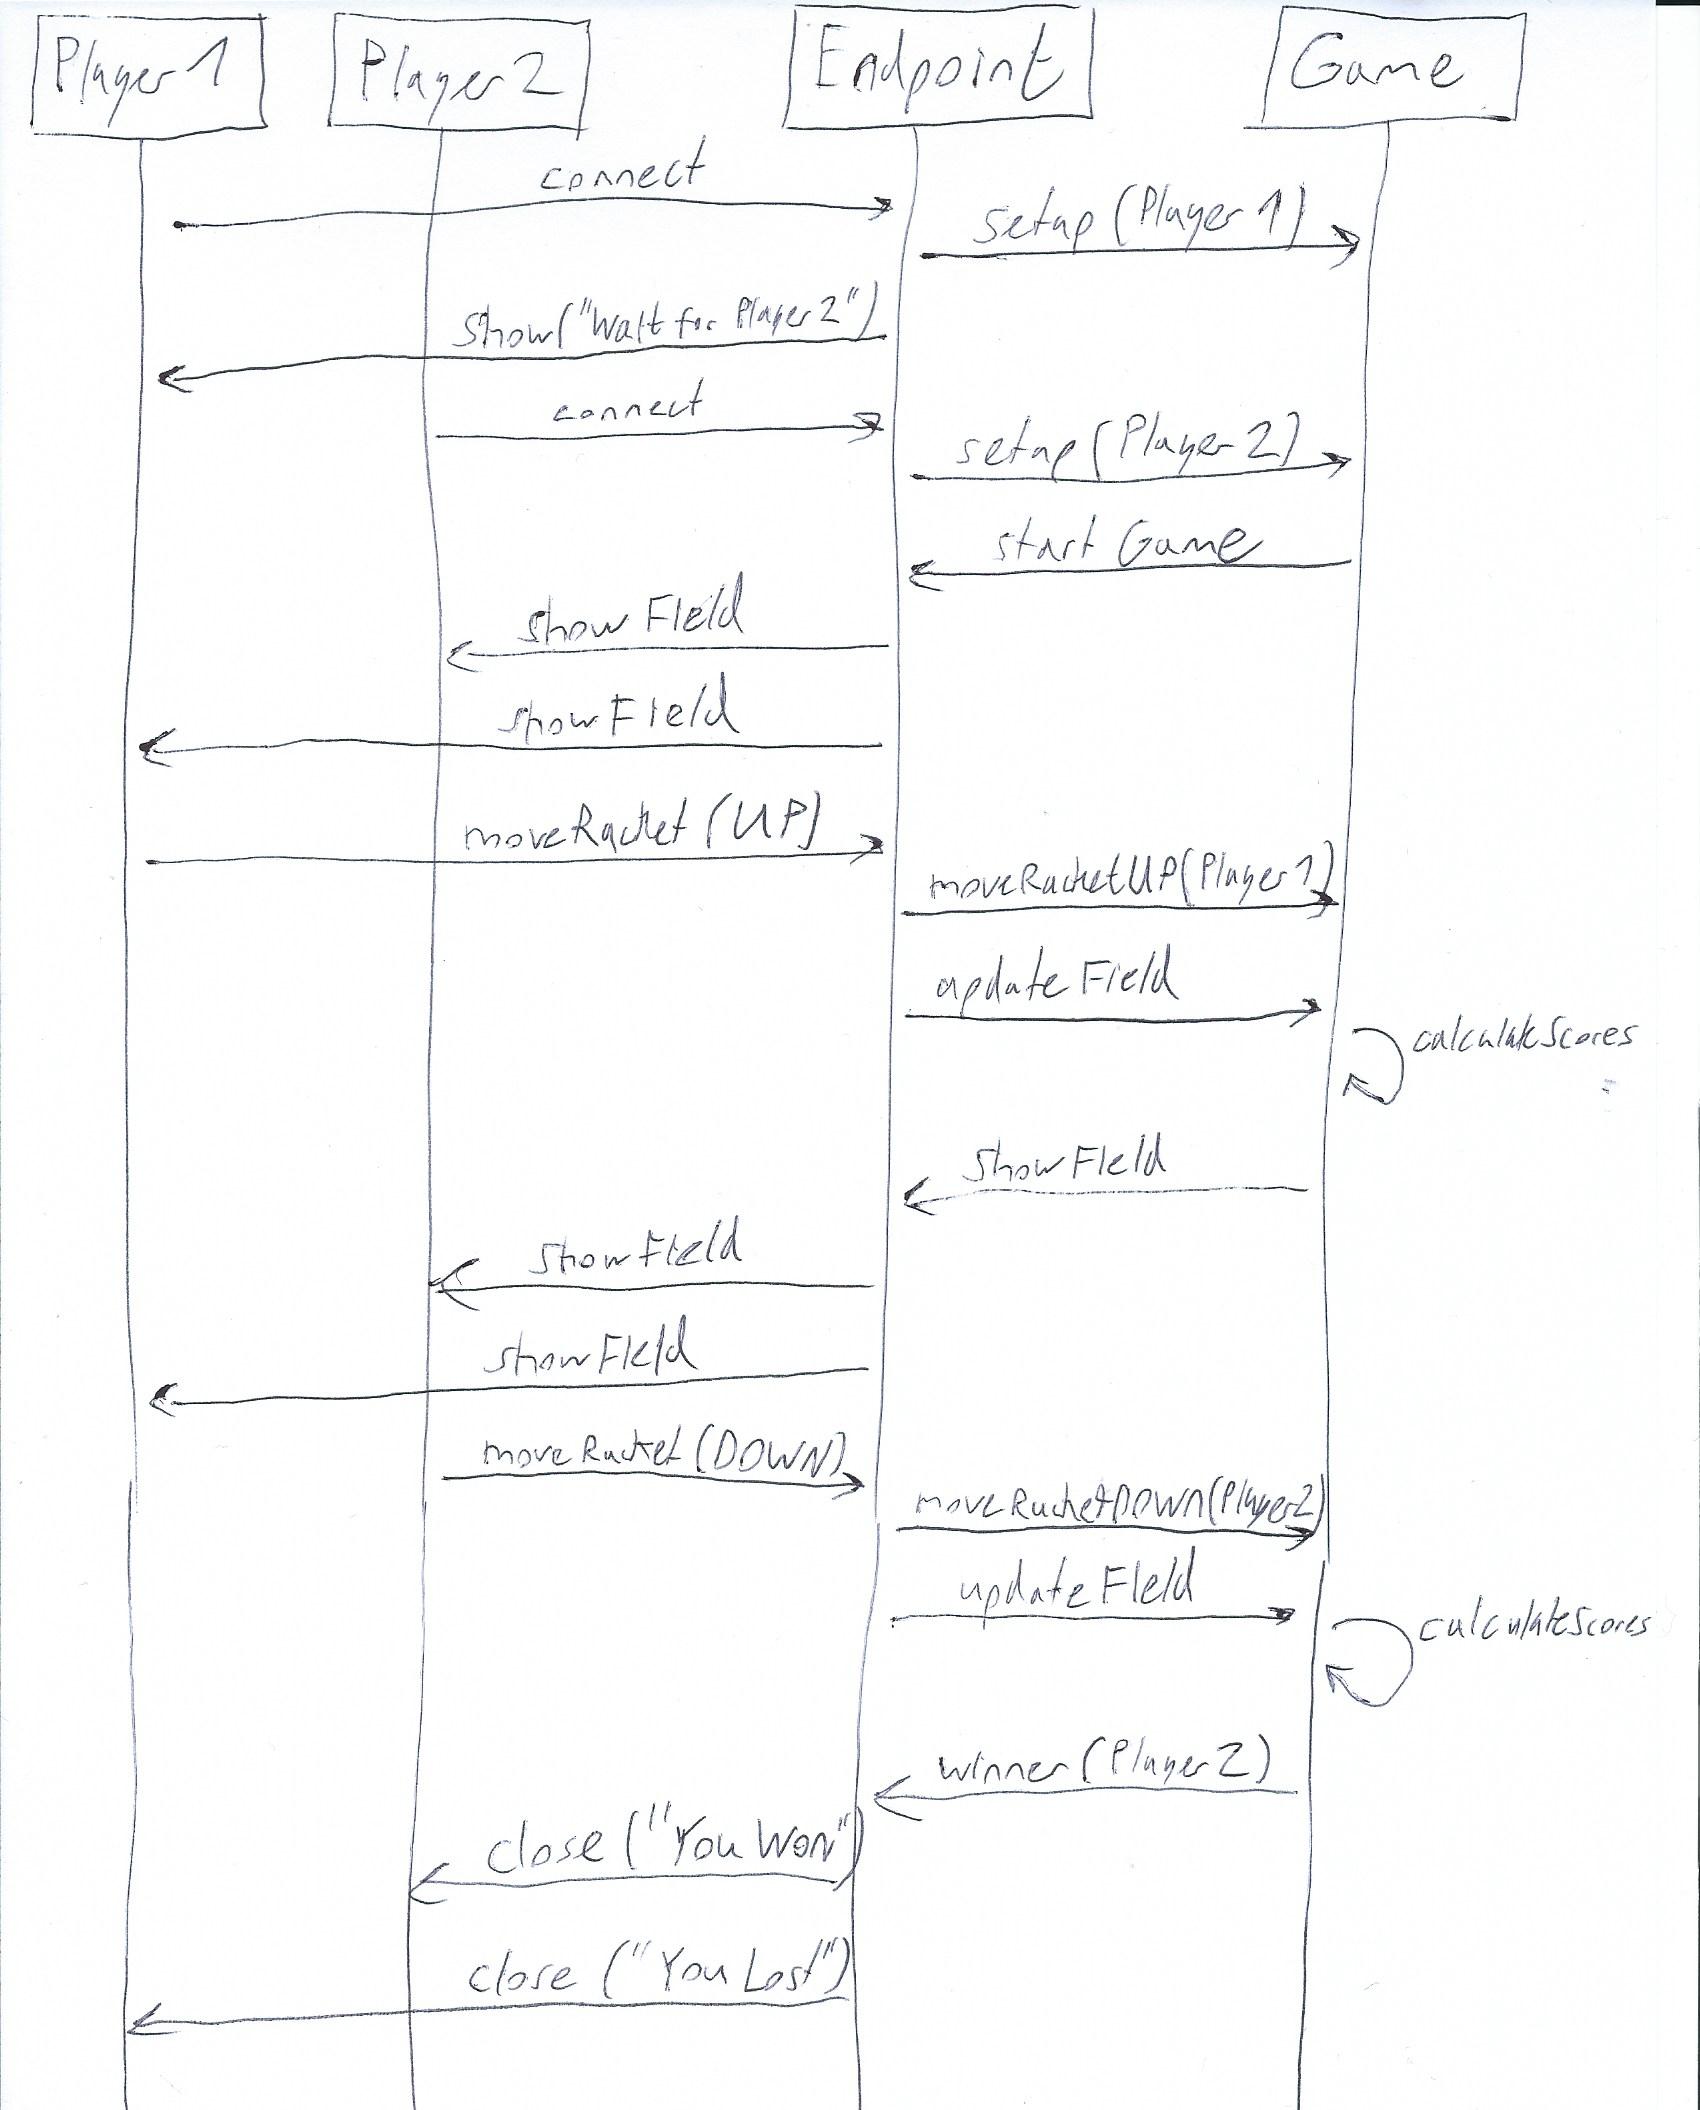 Player 1
Player 2
Endpoint
Game
connect
setup (Player 1)
show("Wait for Player 2")
connect
setup (Player 2)
start Game
show Field
show Field
moveRacket (UP)
moveRacketUP(Player 1)
update Field
calculateScores
show Field
show Field
show Field
moveRacket (DOWN)
moveRacketDOWN(Player2)
update Field
calculateScores
winner (Player 2)
close ("You Won")
close ("You Lost")